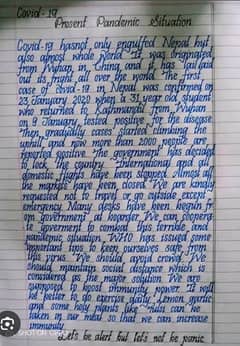 Covid-19
Present Pandemic Situation
Covid-19 hasnot only engulfed Nepal but
also almost whole World. It was originated
from Wuhan, in China, and it has spread
out its right all over the world. The first
case of covid-19 in Nepal was confirmed on
23 January 2020 when a 31 year old student,
who returned to Kathmandu from Wuhan
on 9 January, tested positive for the disease
Then gradually cases started climbing the
uphill, and now more than 2000 people are
reported positive. The government has decided
to lock the country. International and all
domestic flights have been stopped. Almost all
the markets have been closed. We are kindly
requested not to travel or go outside except
emergency. Many desks have been keepin fr-
om government at boarder. We can cooperate
government to combat this terrible and
pandemic situation. WHO has issued some
important tips to keep ourselves safe from
this virus. We should avoid crowd. We
should maintain social distance which is
considered as the major solution. We are
supposed to boost immunity power. It will
be better to do exercise daily. Lemon, garlic
and some holy plants like Tulsi can be
taken in our meal so that we can increase
immunity.
Let's be alert but let's not be panic.